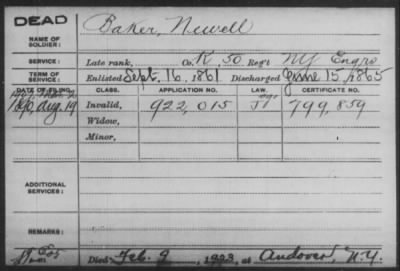 DEAD
NAME OF SOLDIER:
Baker, Newell
SERVICE:
Late rank, Co. K, 50 Reg't NY Engrs
TERM OF SERVICE:
Enlisted Sept. 16, 1861 Discharged June 15, 1865
DATE OF FILING. CLASS. APPLICATION NO. LAW. CERTIFICATE NO.
1890, Aug. 19 Invalid, 922,015 799,859
Widow,
Minor,
ADDITIONAL SERVICES:
REMARKS:
Died Feb. 9, 1923, at Andover, N.Y.